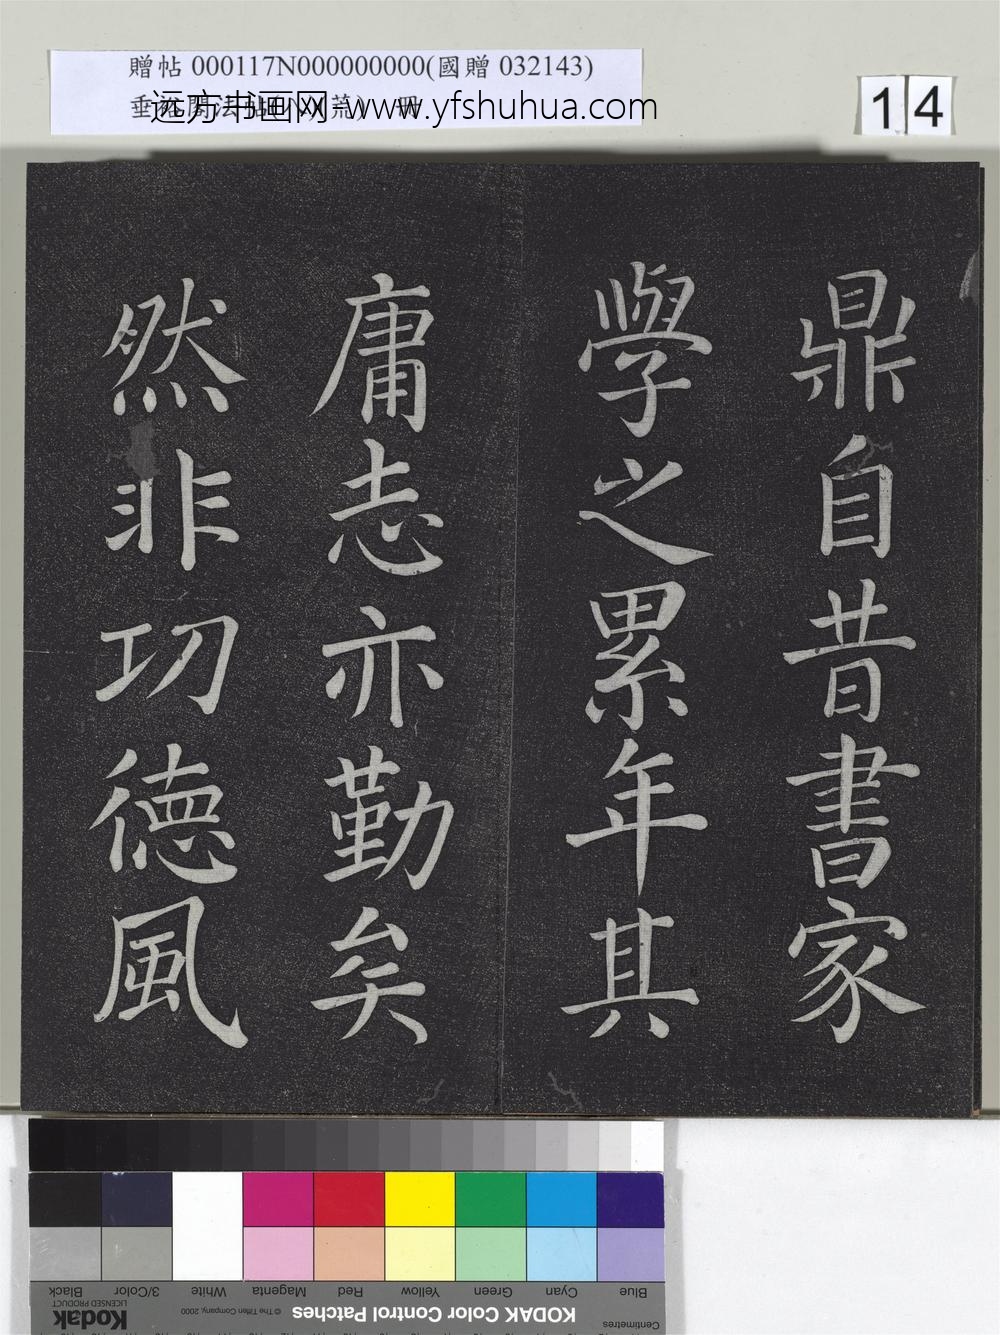 贈帖 000117N000000000(國贈 032143)
远方书画网-www.yfshuhua.com
14
鼎自昔書家
學之累年其
庸志亦勤矣
然非功德風
Blue Cyan Green Yellow Red Magenta White 3/Color Black
Centimetres
KODAK Color Control Patches
© The Tiffen Company, 2000
Kodak
LICENSED PRODUCT